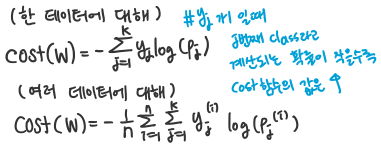 (한 데이터에 대해)
cost(W) = - \sum_{j=1}^{k} y_j log(p_j)
# y_j 가 1일때
j번째 class라고
계산되는 확률이 작을수록
cost함수의 값은 ↑
(여러 데이터에 대해)
cost(W) = - \frac{1}{n} \sum_{i=1}^{n} \sum_{j=1}^{k} y_j^{(i)} log(p_j^{(i)})